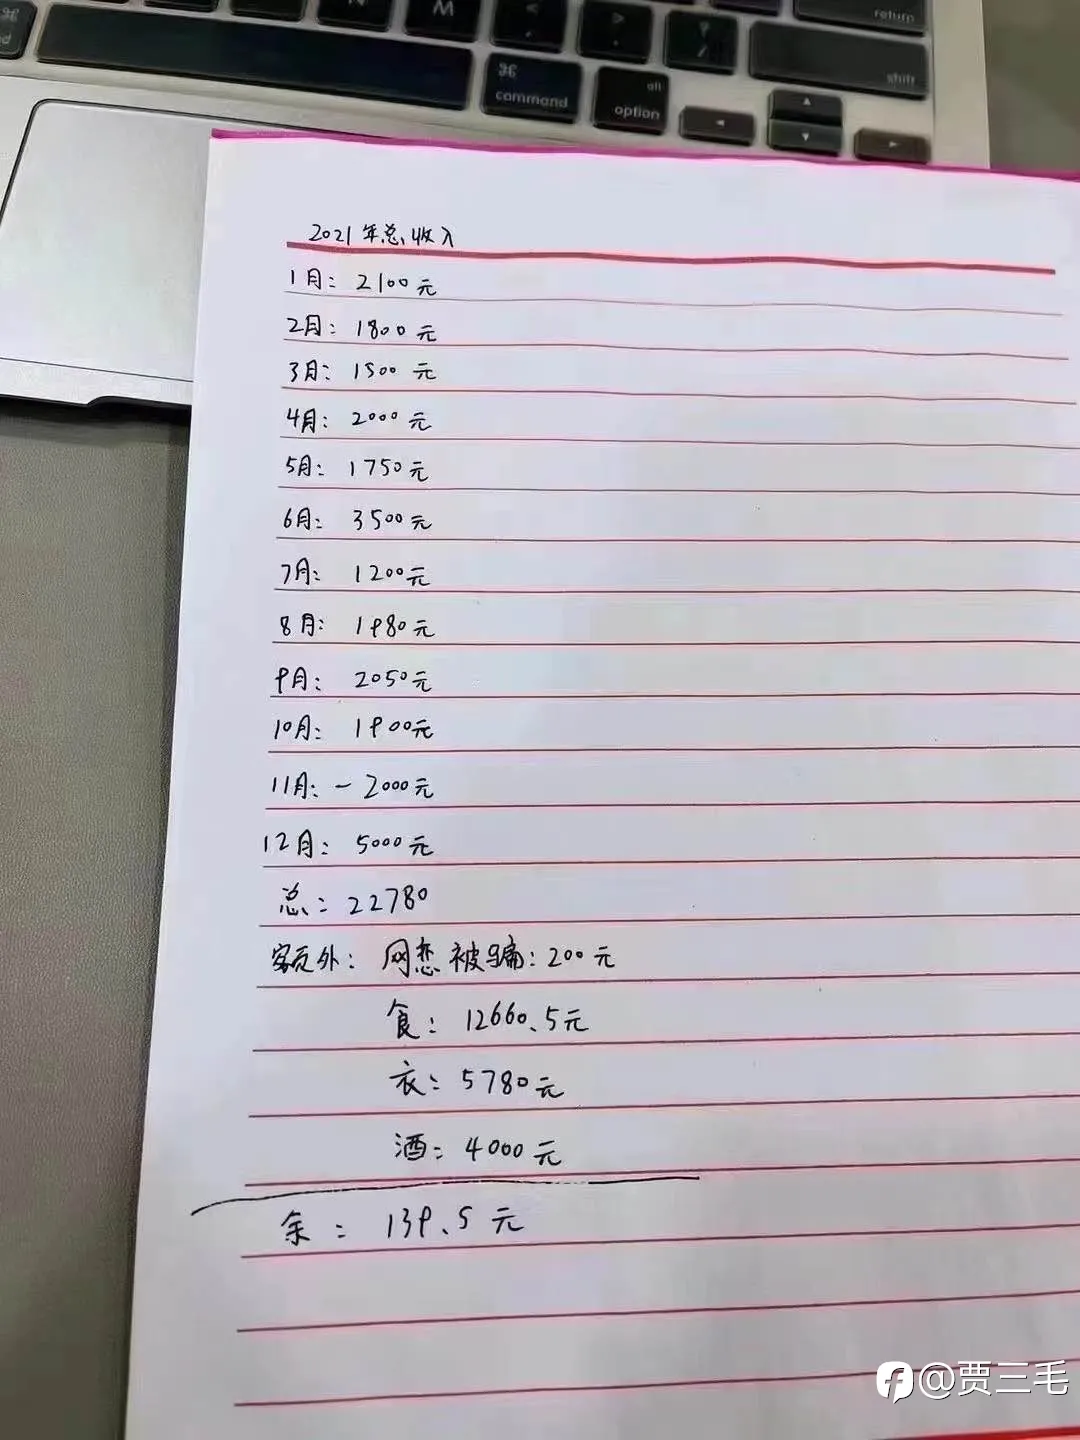 return
shift
command
option
alt
2021年总收入
1月: 2100元
2月: 1800元
3月: 1500元
4月: 2000元
5月: 1750元
6月: 3500元
7月: 1200元
8月: 1980元
9月: 2050元
10月: 1900元
11月: -2000元
12月: 5000元
总: 22780
额外: 网恋被骗: 200元
食: 12660.5元
衣: 5780元
酒: 4000元
余: 139.5元
@贾三毛